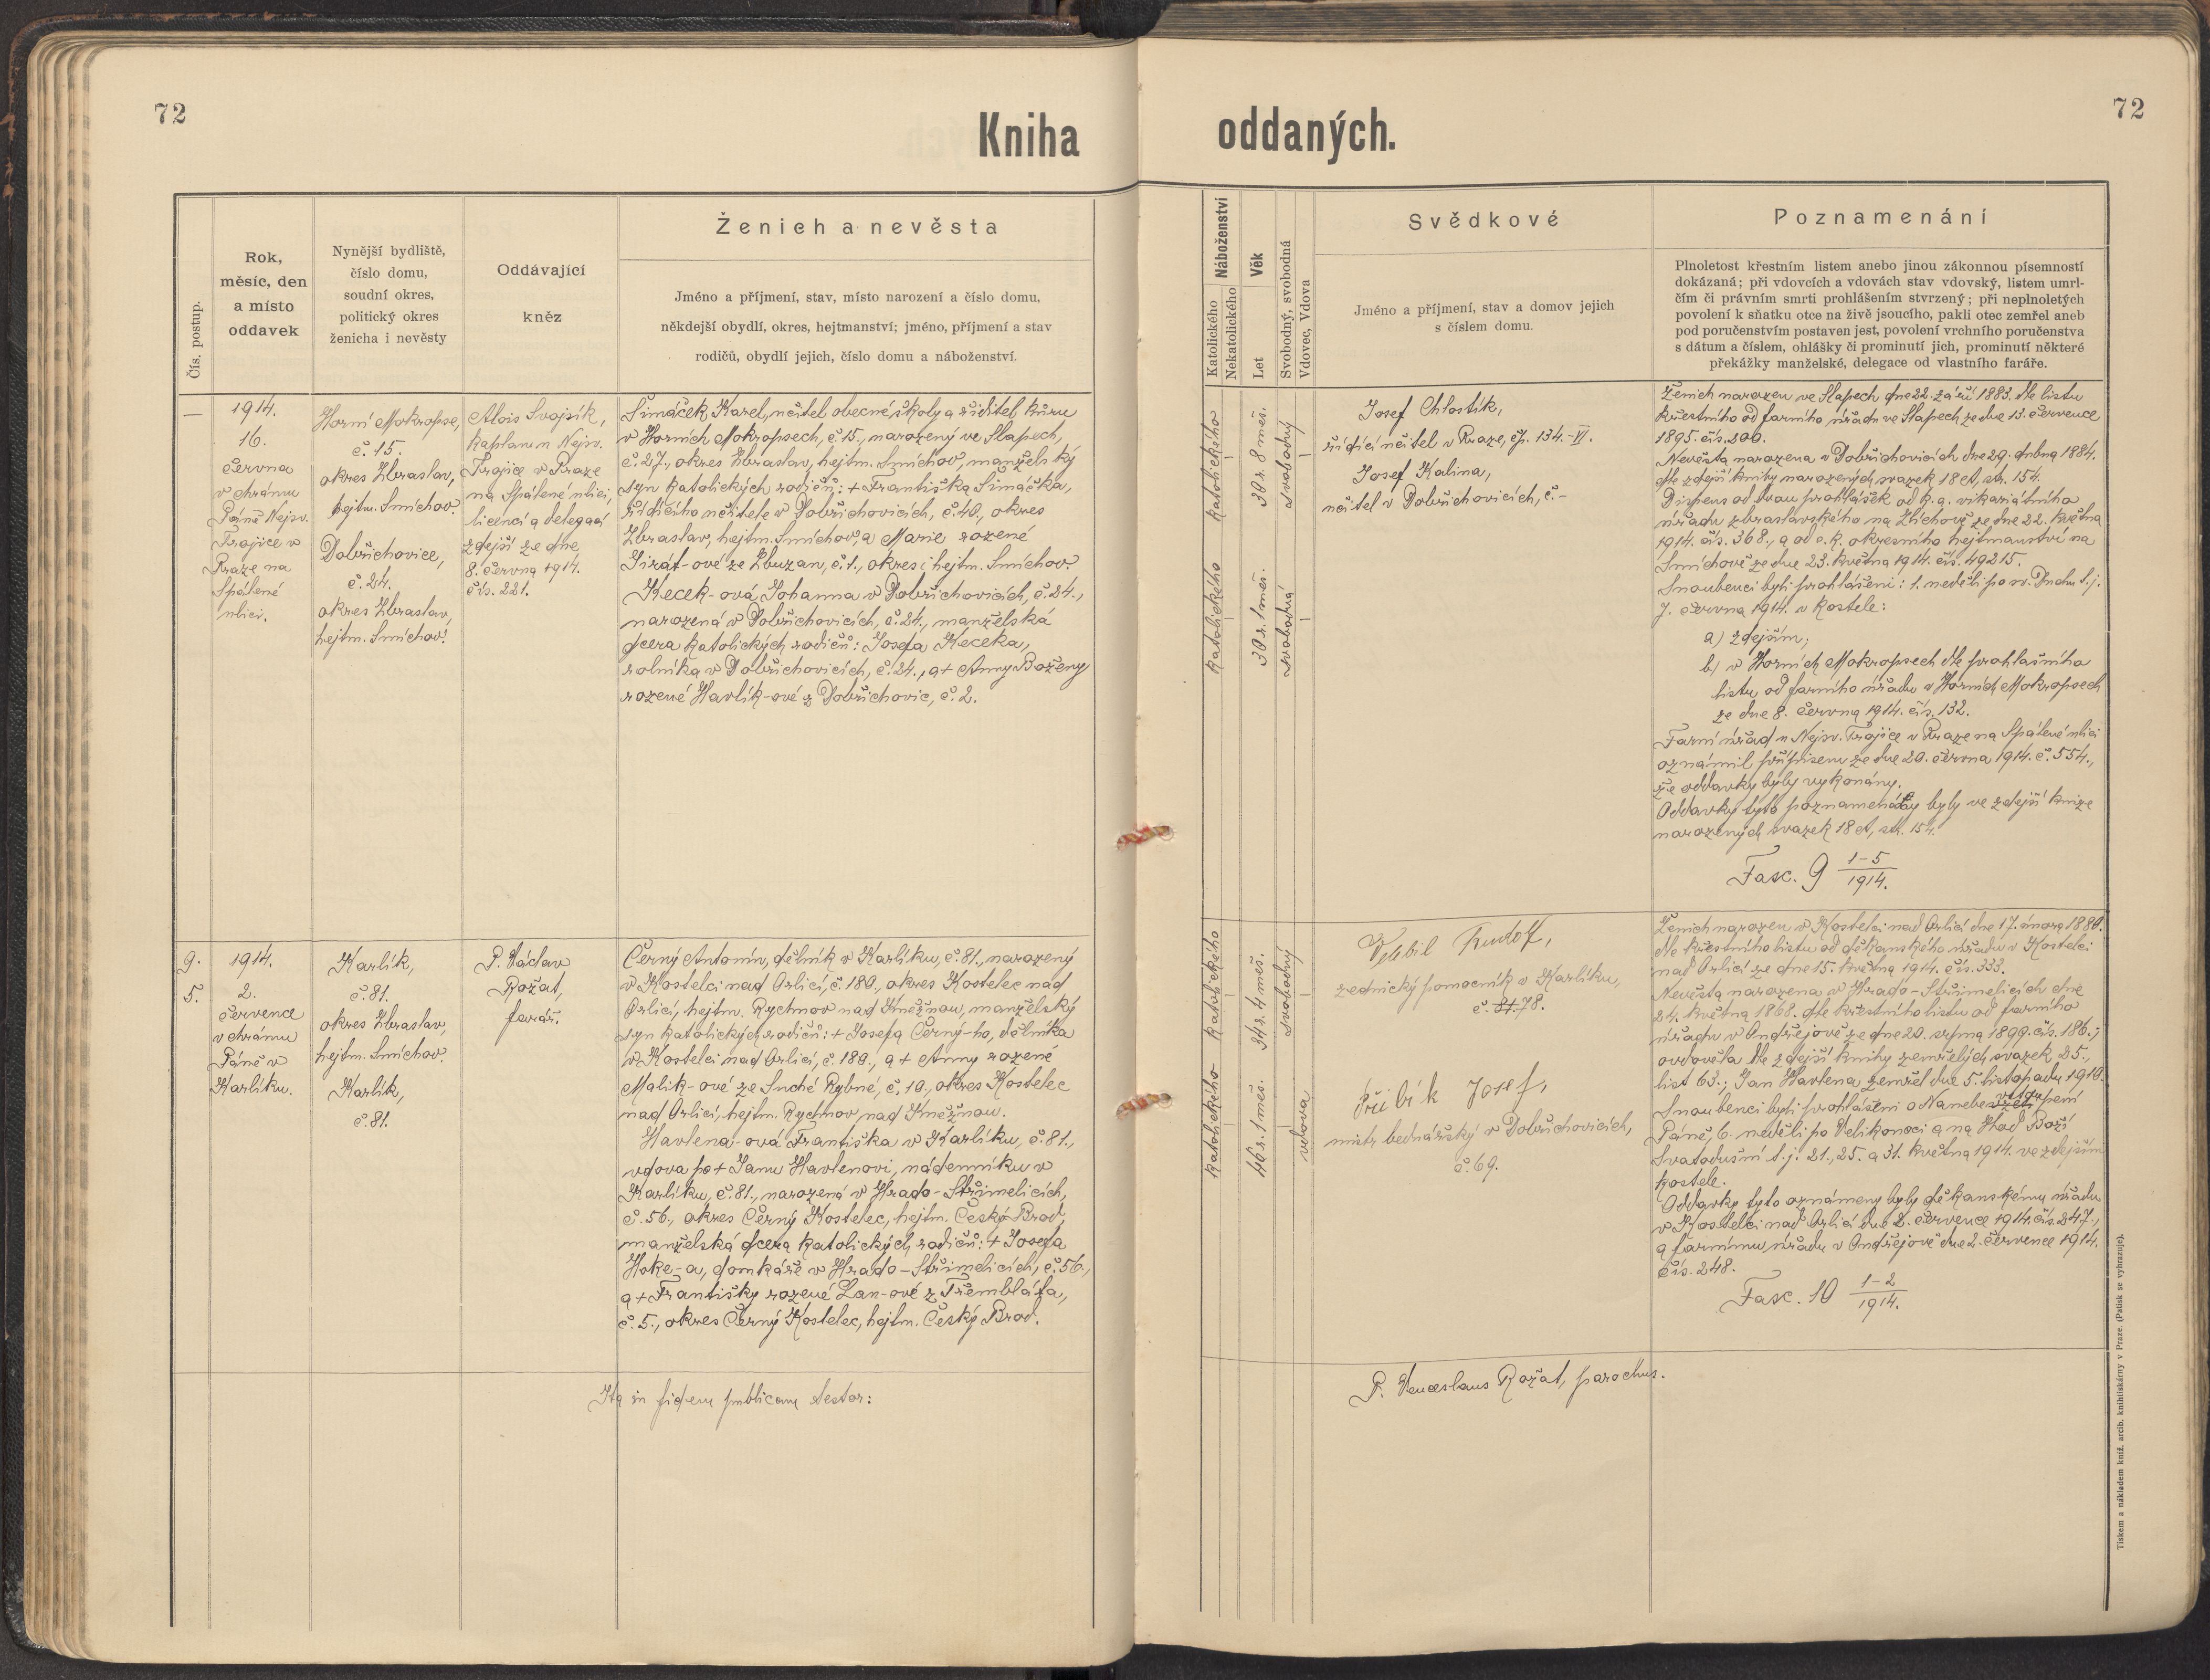 72
Kniha
oddaných.
72
Čís. postup.
Rok,
měsíc, den
a místo
oddavek
Nynější bydliště,
číslo domu,
soudní okres,
politický okres
ženicha i nevěsty
Oddávající
kněz
Ženich a nevěsta
Jméno a příjmení, stav, místo narození a číslo domu,
někdejší obydlí, okres, hejtmanství; jméno, příjmení a stav
rodičů, obydlí jejich, číslo domu a náboženství.
Náboženství
Katolického
Nekatolického
Věk
Let
Svobodný, svobodná
Vdovec, Vdova
Svědkové
Jméno a příjmení, stav a domov jejich
s číslem domu.
Poznamenání
Plnoletost křestním listem anebo jinou zákonnou písemností
dokázaná; při vdovcích a vdovách stav vdovský, listem umrl-
čím či právním smrti prohlášením stvrzený; při neplnoletých
povolení k sňatku otce na živě jsoucího, pakli otec zemřel aneb
pod poručenstvím postaven jest, povolení vrchního poručenstva
s dátum a číslem, ohlášky či prominutí jich, prominutí některé
překážky manželské, delegace od vlastního faráře.
—
1914.
16.
června
v chrámu
Páně Nejsv.
Trojice v
Praze na
Spálené
ulici.
Horní Mokropse,
č. 15.
okres Zbraslav,
hejtm. Smíchov.
Dobřichovice,
č. 24.
okres Zbraslav,
hejtm. Smíchov.
Alois Svojsík,
kaplan u Nejsv.
Trojice v Praze
na Spálené ulici,
licencí a delegací
zdejší ze dne
8. června 1914.
čís. 221.
Šimáček Karel, učitel obecné školy a ředitel kůru
v Horních Mokropsech, č. 15., narozený ve Slapech,
č. 27., okres Zbraslav, hejtm. Smíchov, manželský
syn katolických rodičů: + Františka Šimáčka,
řídícího učitele v Dobřichovicích, č. 40., okres
Zbraslav, hejtm. Smíchov, a Marie rozené
Jirát-ové ze Zbuzan, č. 1., okres i hejtm. Smíchov.
Kecek-ová Johanna v Dobřichovicích, č. 24.,
narozená v Dobřichovicích, č. 24., manželská
dcera katolických rodičů: Josefa Keceka,
rolníka v Dobřichovicích, č. 24., a + Anny Boženy
rozené Havlík-ové z Dobřichovic, č. 2.
katolického
katolického
30 r. 8 měs.
30 r. 1 měs.
svobodný
svobodná
Josef Chlostík,
řídící učitel v Praze, čp. 134.-VI.
Josef Kalina,
učitel v Dobřichovicích, č.-
Ženich narozen ve Slapech dne 22. září 1883. dle listu
křestního od farního úřadu ve Slapech ze dne 13. července
1895. čís. 200.
Nevěsta narozena v Dobřichovicích dne 29. dubna 1884.
dle zdejší knihy narozených svazek 18 A, str. 154.
Dispens od dvou prohlášek od k. a. vikariátního
úřadu zbraslavského na Zlíchově ze dne 22. května
1914. čís. 368., a od c. k. okresního hejtmanství na
Smíchově ze dne 23. května 1914. čís. 49215.
Snoubenci byli prohlášeni: 1. neděli po sv. Duchu t. j.
7. června 1914. v kostele:
a) zdejším;
b) v Horních Mokropsech dle prohlašního
listu od farního úřadu v Horních Mokropsech
ze dne 8. června 1914. čís. 132.
Farní úřad u Nejsv. Trojice v Praze na Spálené ulici
oznámil přípisem ze dne 20. června 1914. č. 554.,
že oddavky byly vykonány.
Oddavky tyto poznamenány byly ve zdejší knize
narozených svazek 18 A, str. 154.
Fasc. 9 1-5
1914.
9.
5.
1914.
2.
července
v chrámu
Páně v
Karlíku.
Karlík,
č. 81.
okres Zbraslav,
hejtm. Smíchov.
Karlík,
č. 81.
P. Václav
Rožat,
farář.
Černý Antonín, dělník v Karlíku, č. 81., narozený
v Kostelci nad Orlicí, č. 180., okres Kostelec nad
Orlicí, hejtm. Rychnov nad Kněžnou, manželský
syn katolických rodičů: + Josefa Černý-ho, dělníka
v Kostelci nad Orlicí, č. 180., a + Anny rozené
Malik-ové ze Suché Rybné, č. 10., okres Kostelec
nad Orlicí, hejtm. Rychnov nad Kněžnou.
Havlena-ová Františka v Karlíku, č. 81.,
vdova po + Janu Havlenovi, nádenníku v
Karlíku, č. 81., narozená v Hrado-Střimelicích,
č. 56., okres Černý Kostelec, hejtm. Český Brod,
manželská dcera katolických rodičů: + Josefa
Hoke-a, domkáře v Hrado-Střimelicích, č. 56.,
a + Františky rozené Lan-ové z Třemblata,
č. 5., okres Černý Kostelec, hejtm. Český Brod.
katolického
katolického
34 r. 4 měs.
46 r. 1 měs.
svobodný
vdova
Velebil Rudolf,
zednický pomocník v Karlíku,
č. 78.
Přibík Josef,
mistr bednářský v Dobřichovicích,
č. 69.
Ženich narozen v Kostelci nad Orlicí dne 17. února 1880.
dle křestního listu od děkanského úřadu v Kostelci
nad Orlicí ze dne 15. května 1914. čís. 333.
Nevěsta narozena v Hrado-Střimelicích dne
24. května 1868. dle křestního listu od farního
úřadu v Ondřejově ze dne 20. srpna 1899. čís. 186.;
ovdověla dle zdejší knihy zemřelých svazek 25.,
list 63.; Jan Havlena zemřel dne 5. listopadu 1910.
Snoubenci byli prohlášeni o Nanebevstoupení
Páně, 6. neděli po Velikonoci a na Hod Boží
Svatodušní t. j. 21., 25. a 31. května 1914. ve zdejším
kostele.
Oddavky tyto oznámeny byly děkanskému úřadu
v Kostelci nad Orlicí dne 2. července 1914. čís. 247.,
a farnímu úřadu v Ondřejově dne 2. července 1914.
čís. 248.
Fasc. 10 1-2
1914.
Ita in fidem publicam testor:
P. Venceslaus Rožat, parochus.
Tiskem a nákladem kníž. arcib. knihtiskárny v Praze. (Patisk se vyhrazuje).